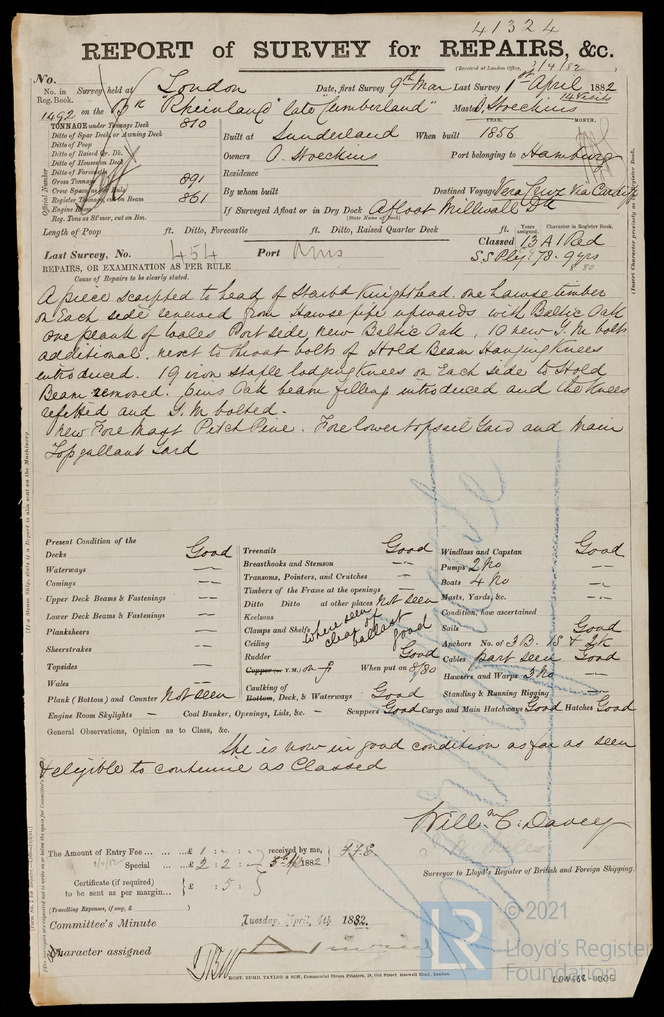 41324
REPORT of SURVEY for REPAIRS, &c.
(Received at London Office, 3/4/82)
No.
No. in Reg. Book. Survey held at London Date, first Survey 9th Mar Last Survey 1st April 1882
14 Visits
1492 on the Bk "Rheinland" late "Cumberland" Master D. Stoeckins
TONNAGE under Tonnage Deck 810
Ditto of Spar Deck, or Awning Deck
Ditto of Poop
Ditto of Raised Qr. Dk.
Ditto of House on Deck
Ditto of Forecastle
Gross Tonnage 891
Crew Space
Register Tonnage, cut on Beam 861
Engine Room
Reg. Tons as St'mer, cut on Bm.
Official Number
YEAR. MONTH.
Built at Sunderland When built 1856
Owners D. Stoeckins Port belonging to Hamburg
Residence
By whom built Destined Voyage Vera Cruz via Cardiff
If Surveyed Afloat or in Dry Dock Afloat Millwall Dk
(State Name of Dock)
Length of Poop ft. Ditto, Forecastle ft. Ditto, Raised Quarter Deck ft.
Years assigned. Character in Register Book.
Last Survey, No. 454 Port Classed 13 A1 Red
REPAIRS, OR EXAMINATION AS PER RULE
Cause of Repairs to be clearly stated.
A piece scarphed to head of Starbd Knighthead. one hawse timber
on each side renewed from Hawse pipe upwards with Baltic Oak
one plank of wales Port side new Baltic Oak, 10 new Y.M. bolts
additional. next to throat bolts of Hold Beam Hanging Knees
introduced. 19 iron staple lodging Knees on Each side to Hold
Beam removed. Oak beam filling introduced and the Knees
refitted and Y.M. bolted.
New Fore Mast Pitch Pine. Fore lower topsail Yard and Main
Topgallant Yard
Present Condition of the
Decks Good
Waterways —
Comings —
Upper Deck Beams & Fastenings —
Lower Deck Beams & Fastenings —
Planksheers —
Sheerstrakes —
Topsides —
Wales —
Plank (Bottom) and Counter Not seen
Engine Room Skylights —
Treenails Good
Breasthooks and Stemson —
Transoms, Pointers, and Crutches —
Timbers of the Frame at the openings —
Ditto Ditto at other places Not seen
Keelsons
Clamps and Shelfs
Ceiling where seen clear of ballast good
Rudder Good
Copper (or Y.M.) on When put on 8/80
Caulking of Bottom, Deck, & Waterways Good
Coal Bunker, Openings, Lids, &c. —
Scuppers Good
Windlass and Capstan Good
Pumps 2 No —
Boats 4 No —
Masts, Yards, &c. —
Condition, how ascertained
Sails Good
Anchors No. of 3 B. 1S & 2K
Cables part seen Good
Hawsers and Warps 3 No —
Standing & Running Rigging —
Cargo and Main Hatchways Good Hatches Good
General Observations, Opinion as to Class, &c.
She is now in good condition as far as seen
& eligible to continue as Classed
Willm C. Davey
Surveyor to Lloyd's Register of British and Foreign Shipping.
The Amount of Entry Fee ... ... £ 1 : - : - received by me,
Special ... ... £ 2 : 2 : - 1882
Certificate (if required) to be sent as per margin... £ : 5 :
(Travelling Expenses, if any, £ )
Committee's Minute Tuesday, April, 4th 1882.
Character assigned
RODT. EDMD. TAYLOR & SON, Commercial Steam Printers, 19, Old Street Goswell Road, London.
© 2021
LR
Lloyd's Register
Foundation